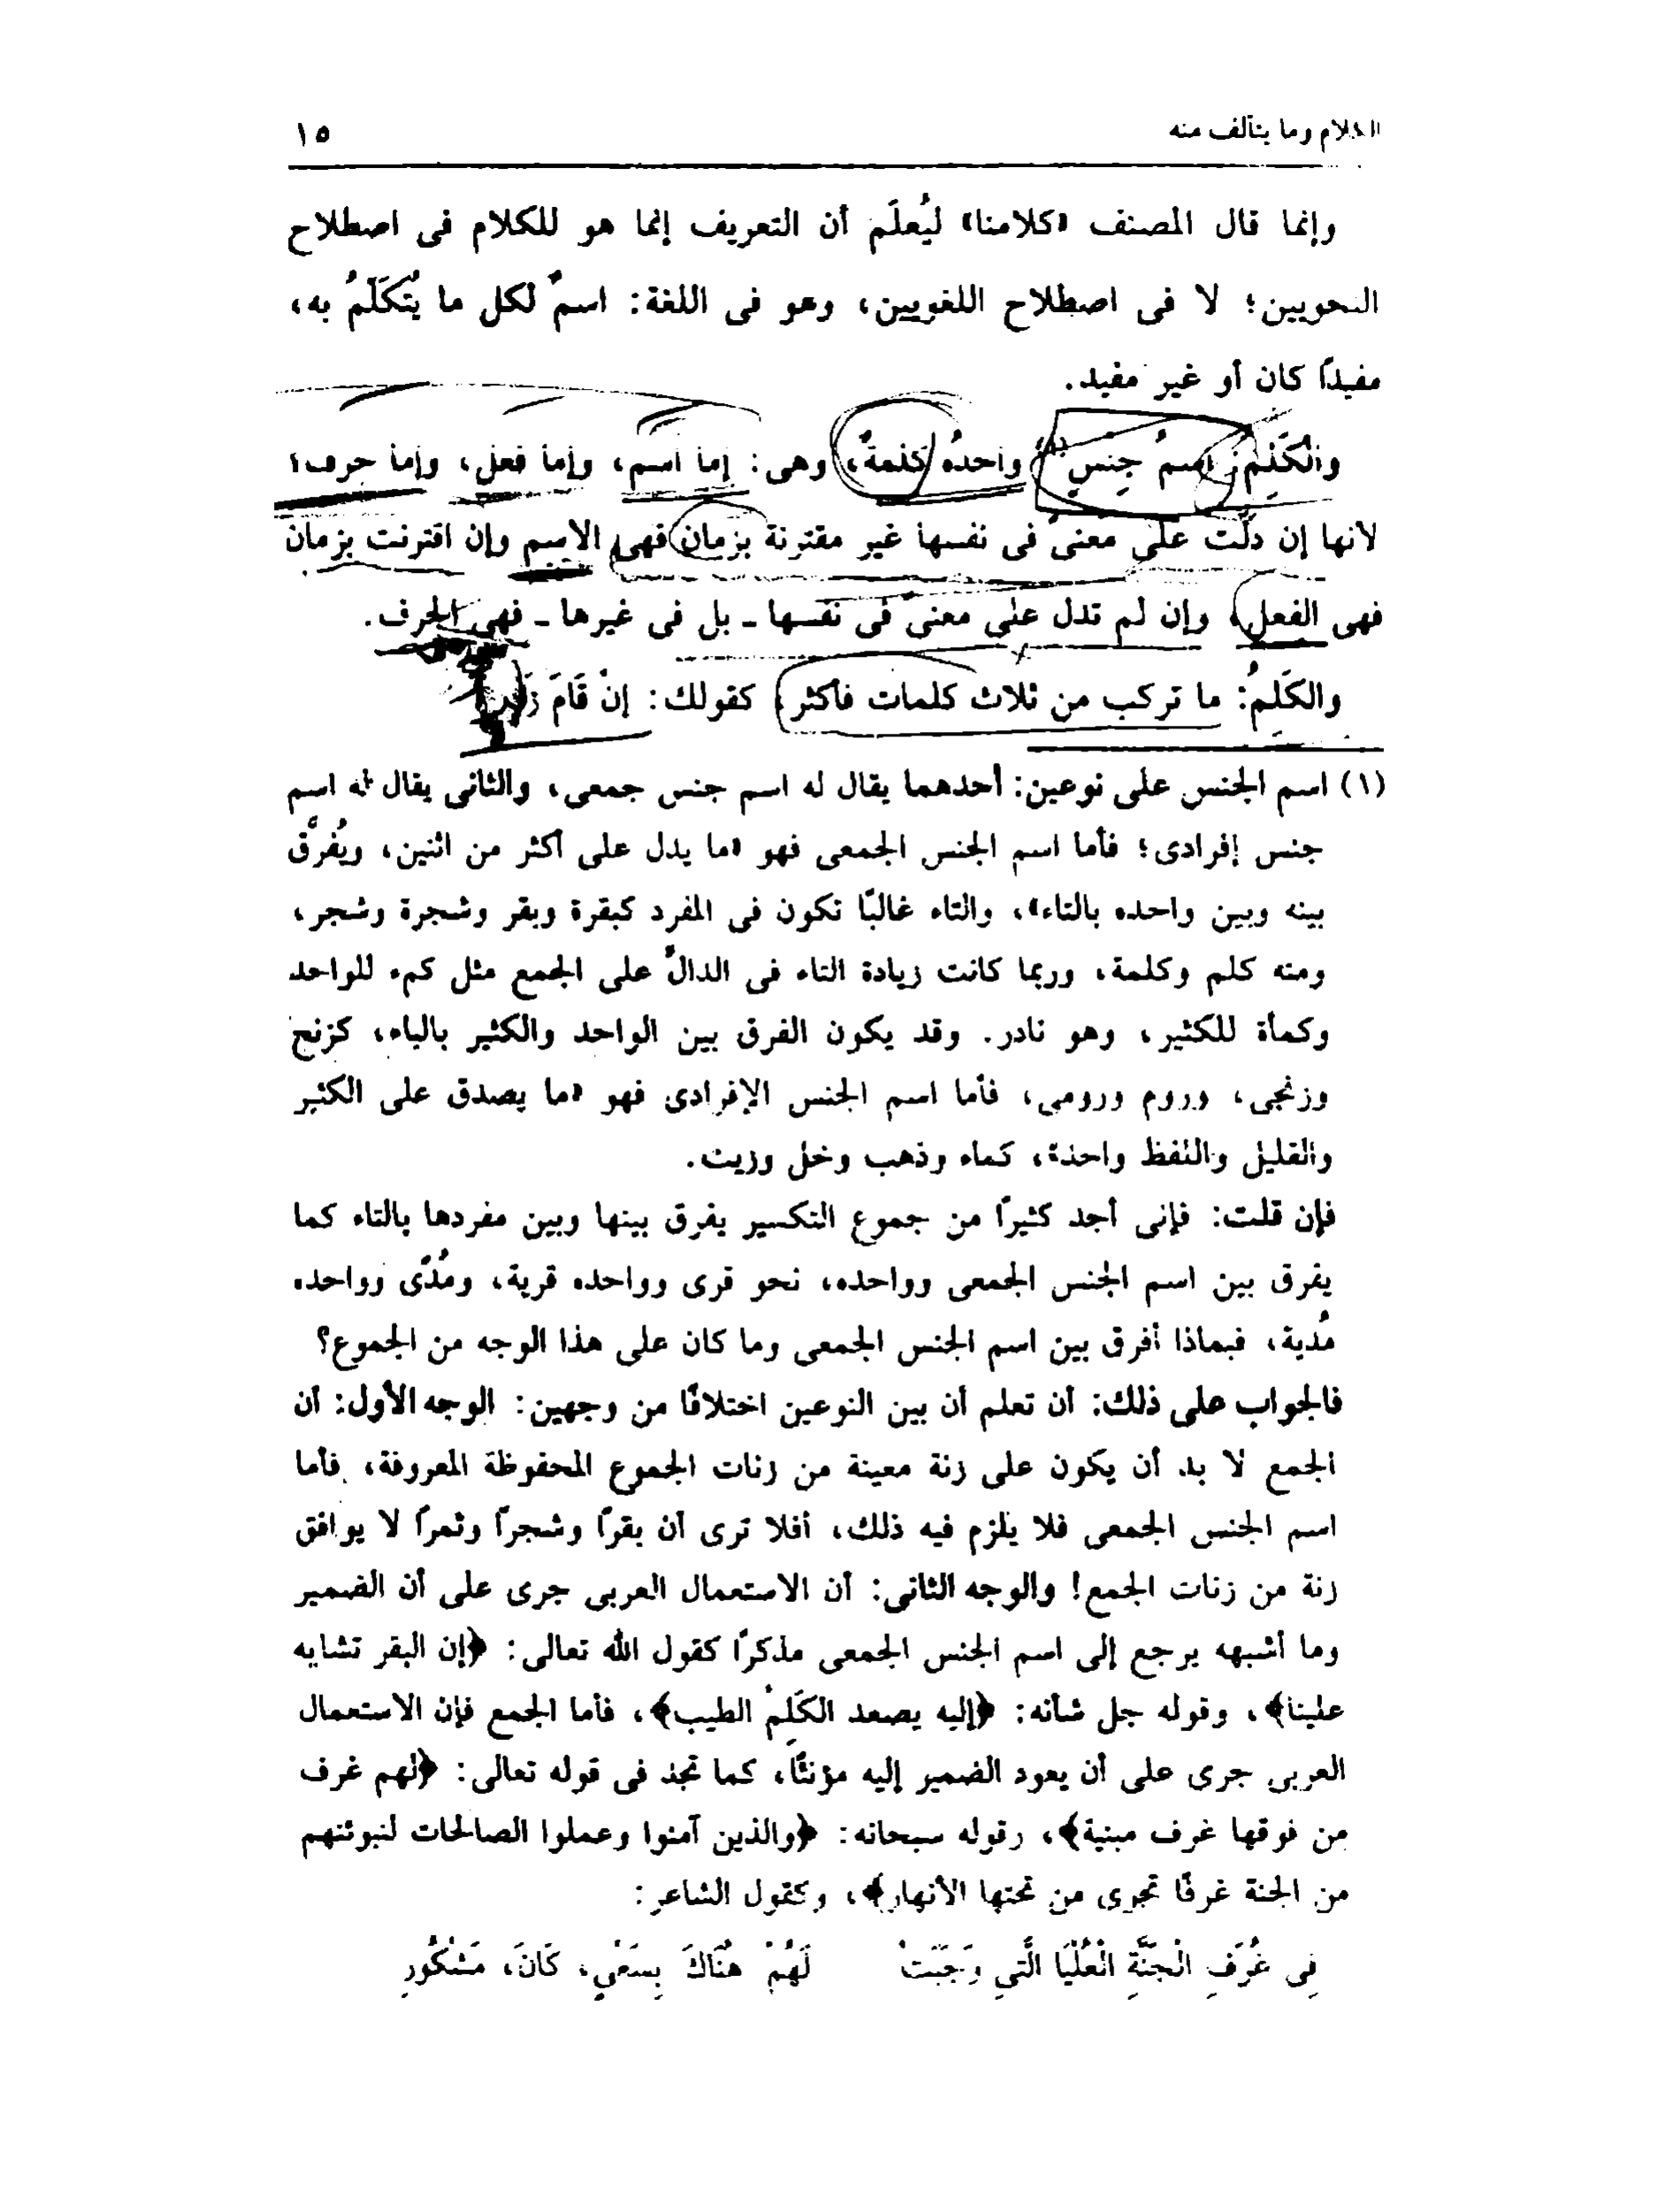 الكلام وما يتألف منه ١٥
وإنما قال المصنف «كلامنا» ليُعلَم أن التعريف إنما هو للكلام فى اصطلاح
النحويين؛ لا فى اصطلاح اللغويين، وهو فى اللغة: اسمٌ لكل ما يُتَكَلَّمُ به،
مفيداً كان أو غير مفيد.
والْكَلِمُ: اسمُ جِنْسٍ (١) واحدُه كَلمَةٌ، وهى: إما اسم، وإما فعل، وإما حرف؛
لأنها إن دلَّت على معنىً فى نفسها غير مقترنة بزمان فهى الاسم وإن اقترنت بزمان
فهى الفعل، وإن لم تدل على معنىً فى نفسها ـ بل فى غيرها ـ فهى الحرف.
والكَلِمُ: ما تركب من ثلاث كلمات فأكثر، كقولك: إنْ قَامَ
(١) اسم الجنس على نوعين: أحدهما يقال له اسم جنس جمعى، والثانى يقال له اسم
جنس إفرادى؛ فأما اسم الجنس الجمعى فهو «ما يدل على أكثر من اثنين، ويُفرَّق
بينه وبين واحده بالتاء»، والتاء غالبًا تكون فى المفرد كبقرة وبقر وشجرة وشجر،
ومنه كلم وكلمة، وربما كانت زيادة التاء فى الدالِّ على الجمع مثل كمء للواحد
وكمأة للكثير، وهو نادر. وقد يكون الفرق بين الواحد والكثير بالياء، كزنج
وزنجى، وروم ورومى، فأما اسم الجنس الإفرادى فهو «ما يصدق على الكثير
والقليل واللفظ واحد»، كماء وذهب وخل وزيت.
فإن قلت: فإنى أجد كثيرًا من جموع التكسير يفرق بينها وبين مفردها بالتاء كما
يفرق بين اسم الجنس الجمعى وواحده، نحو قرى وواحده قرية، ومُدًى وواحده
مُدية، فبماذا أفرق بين اسم الجنس الجمعى وما كان على هذا الوجه من الجموع؟
فالجواب على ذلك: أن تعلم أن بين النوعين اختلافًا من وجهين: الوجه الأول: أن
الجمع لا بد أن يكون على زنة معينة من زنات الجموع المحفوظة المعروفة، فأما
اسم الجنس الجمعى فلا يلزم فيه ذلك، أفلا ترى أن بقرًا وشجرًا وثمرًا لا يوافق
زنة من زنات الجمع! والوجه الثانى: أن الاستعمال العربى جرى على أن الضمير
وما أشبهه يرجع إلى اسم الجنس الجمعى مذكرًا كقول الله تعالى: ﴿إن البقر تشابه
علينا﴾، وقوله جل شأنه: ﴿إليه يصعد الكَلِمُ الطيب﴾، فأما الجمع فإن الاستعمال
العربى جرى على أن يعود الضمير إليه مؤنثًا، كما تجد فى قوله تعالى: ﴿لهم غرف
من فوقها غرف مبنية﴾، وقوله سبحانه: ﴿والذين آمنوا وعملوا الصالحات لنبوئنهم
من الجنة غرفًا تجرى من تحتها الأنهار﴾، وكقول الشاعر:
فِى غُرَفِ الْجَنَّةِ الْعُلْيَا الَّتِى وَجَبَتْ لَهُمْ هُنَاكَ بِسَعْىٍ، كَانَ، مَشْكُورِ